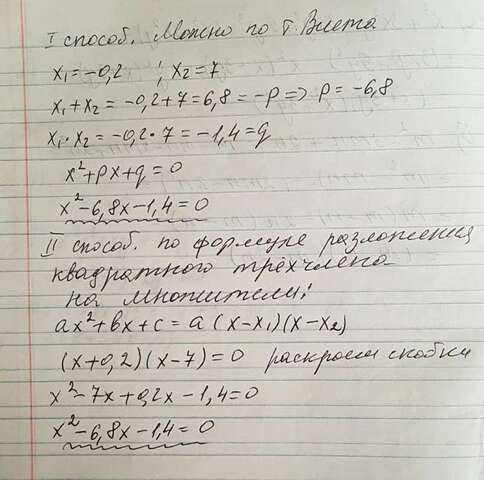 I способ. Можно по т. Виета
x₁ = -0,2 ; x₂ = 7
x₁ + x₂ = -0,2 + 7 = 6,8 = -p => p = -6,8
x₁ · x₂ = -0,2 · 7 = -1,4 = q
x² + px + q = 0
x² - 6,8x - 1,4 = 0
II способ. по формуле разложения
квадратного трёхчлена
на множители:
ax² + bx + c = a (x - x₁)(x - x₂)
(x + 0,2)(x - 7) = 0 раскроем скобки
x² - 7x + 0,2x - 1,4 = 0
x² - 6,8x - 1,4 = 0